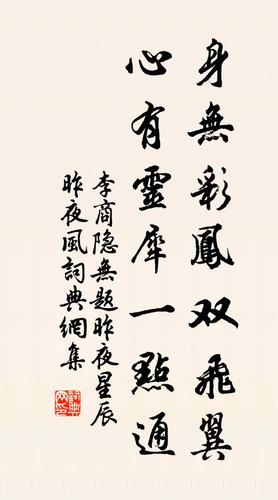 身無彩鳳双飛翼
心有靈犀一點通
李商隐無題昨夜星辰
昨夜風詞典網集